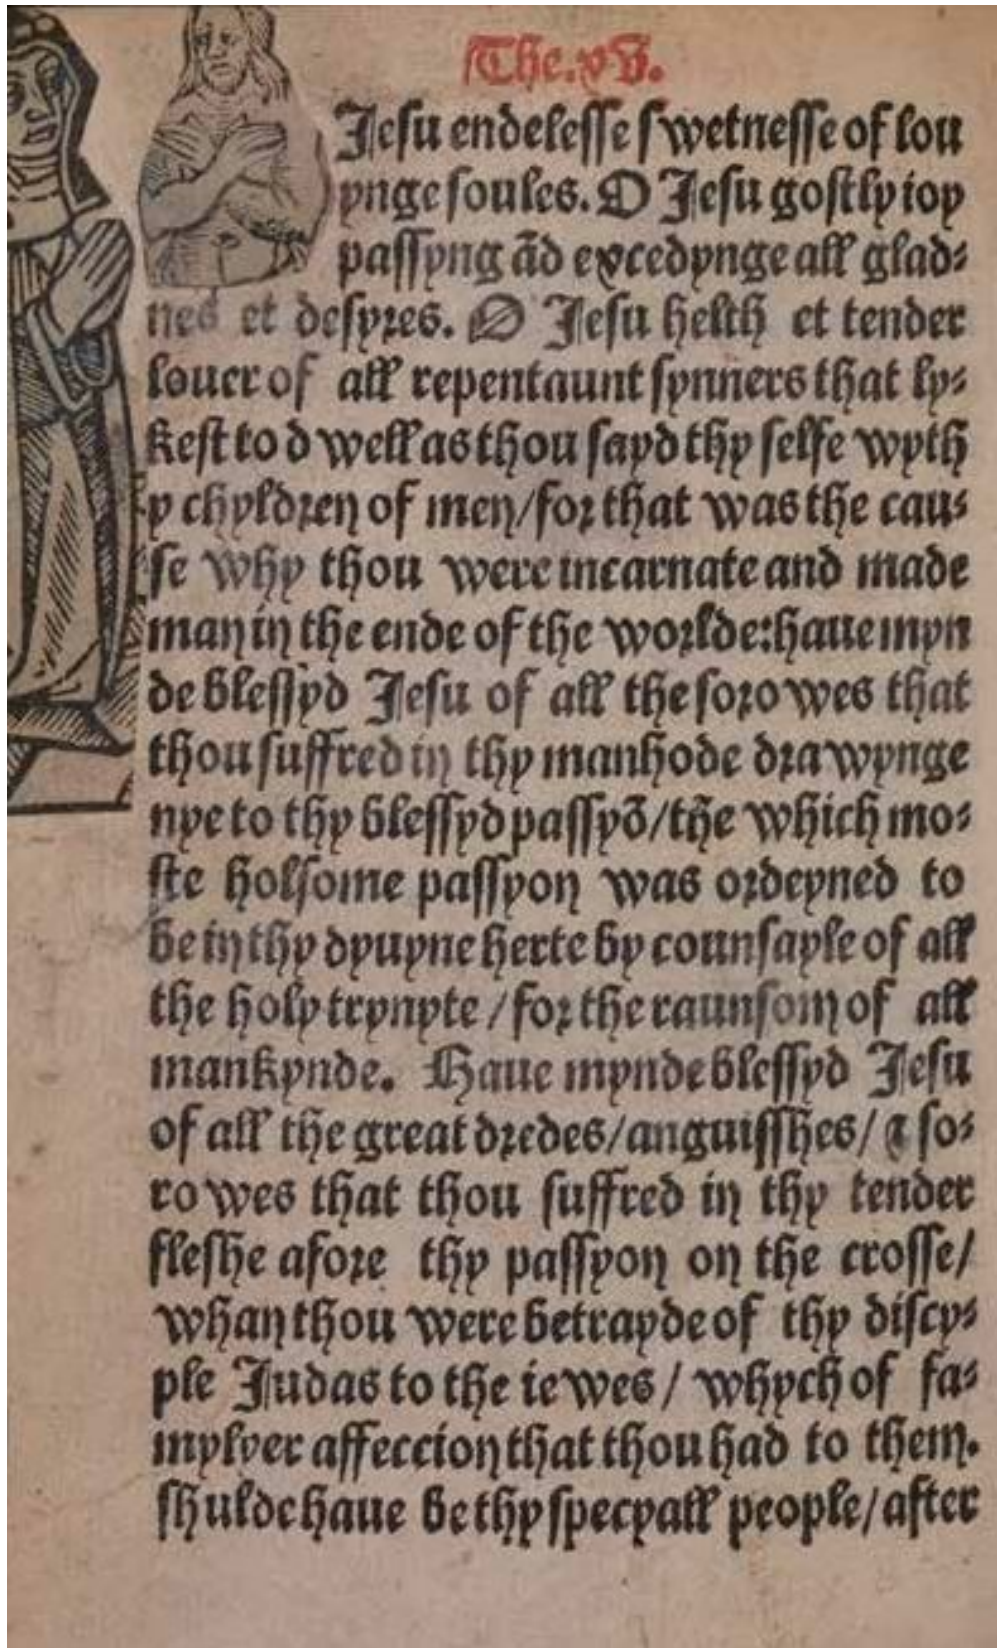 The.xv.
Jesu endelesse swetnesse of lou
ynge soules. O Jesu gostly ioy
passyng ãd excedynge all glad⸗
nes et desyres. O Jesu helth et tender
louer of all repentaunt synners that ly⸗
kest to dwell as thou sayd thy selfe wyth
y chyldren of men/for that was the cau⸗
se why thou were incarnate and made
man in the ende of the worlde:haue myn
de blessyd Jesu of all the sorowes that
thou suffred in thy manhode drawynge
nye to thy blessyd passyõ/the which mo⸗
ste holsome passyon was ordeyned to
be in thy dyuyne herte by counsayle of all
the holy trynyte/for the raunsom of all
mankynde. Haue mynde blessyd Jesu
of all the great dredes/anguisshes/⁊ so⸗
rowes that thou suffred in thy tender
fleshe afore thy passyon on the crosse/
whan thou were betrayde of thy discy⸗
ple Judas to the iewes/whych of fa⸗
mylyer affeccion that thou had to them.
shulde haue be thy specyall people/after